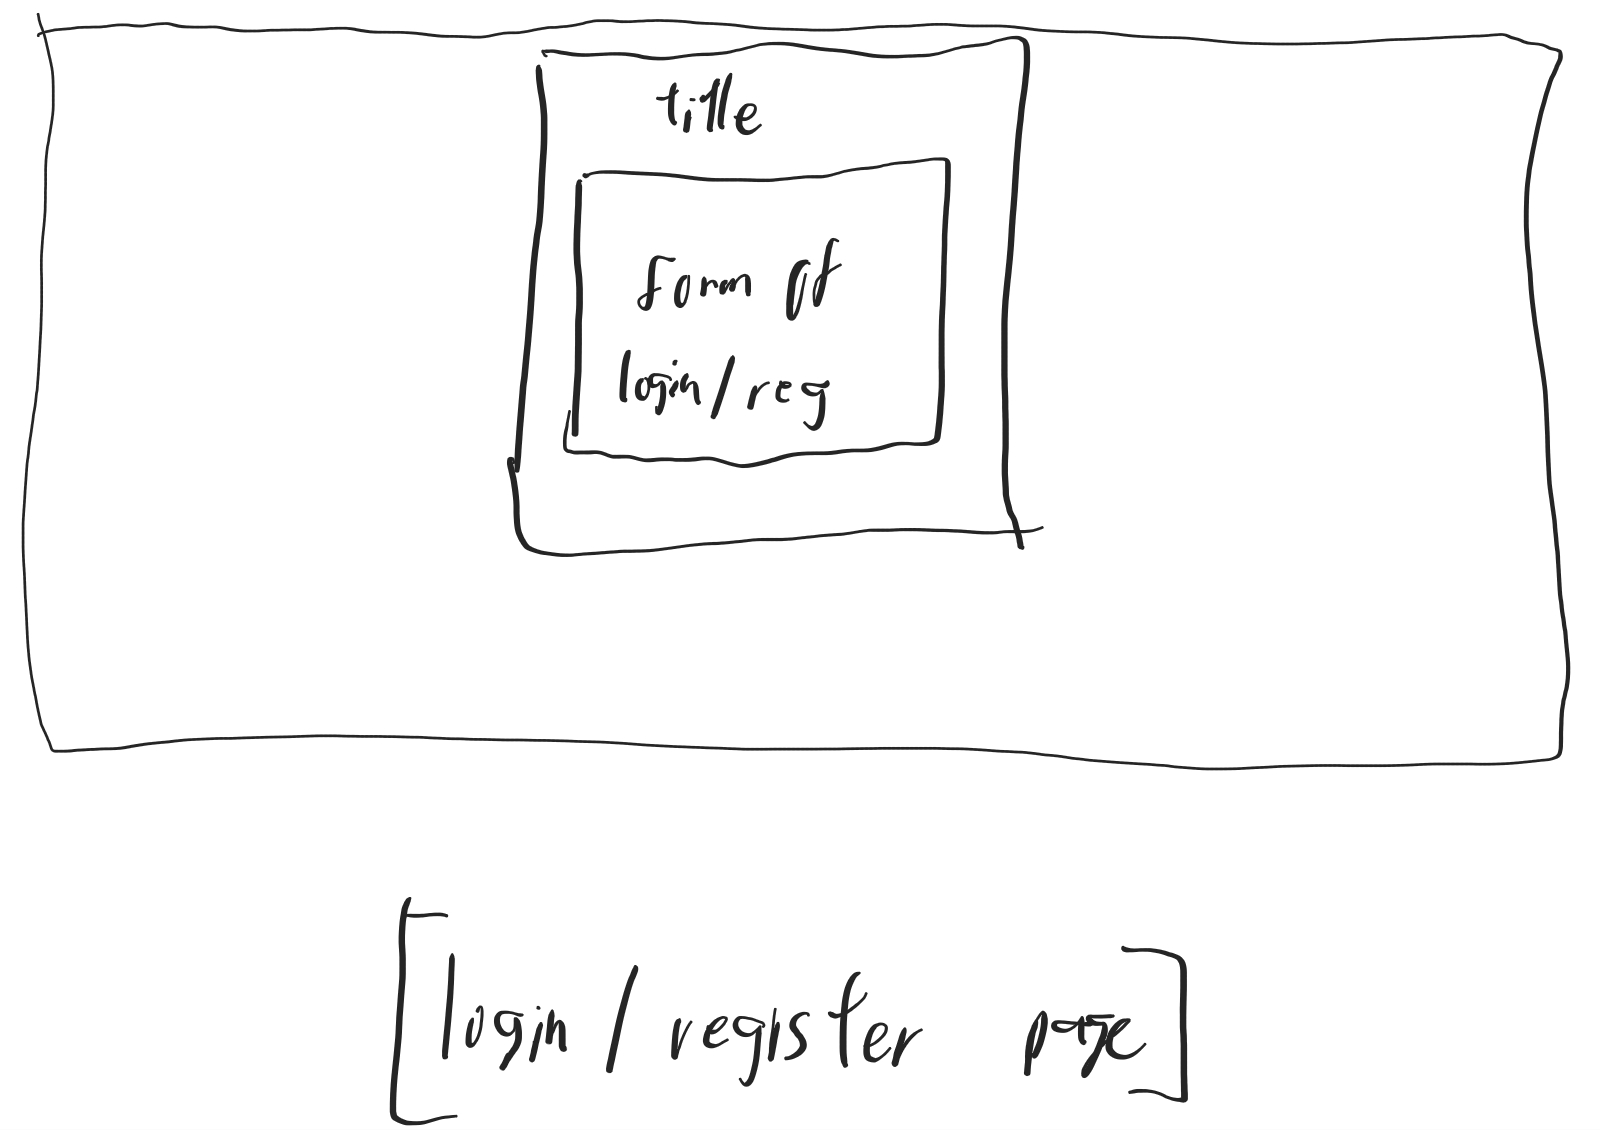 title
form of
login/reg
login / register page